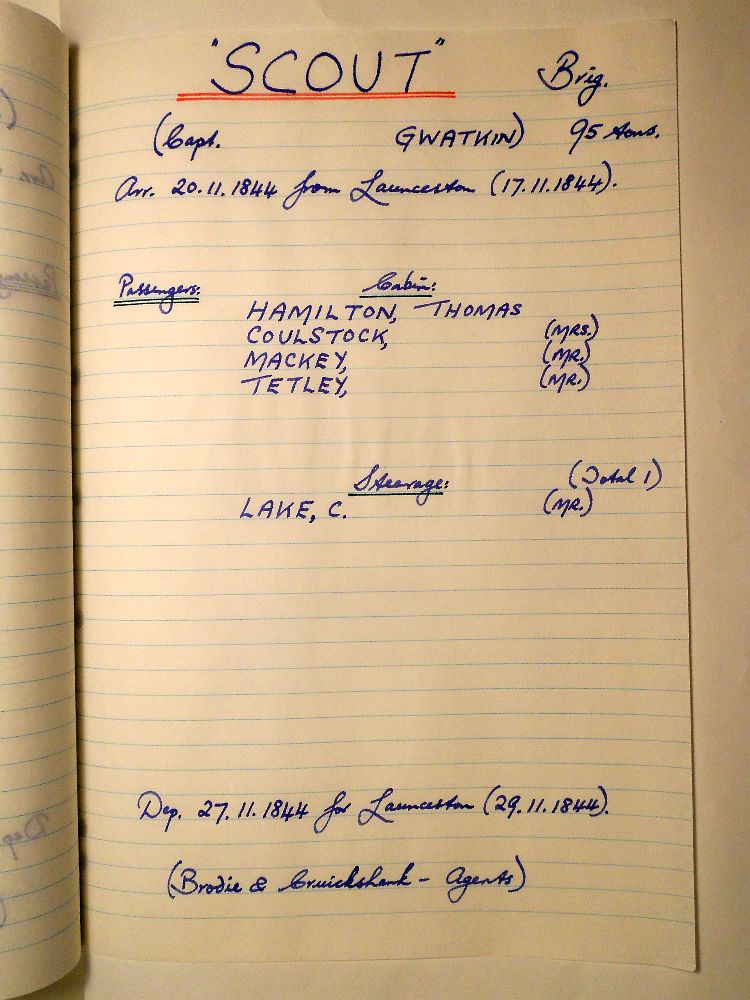 "SCOUT" Brig.
(Capt. GWATKIN) 95 tons.
Arr. 20.11.1844 from Launceston (17.11.1844).
Passengers: Cabin:
HAMILTON, THOMAS
COULSTOCK, (MRS.)
MACKEY, (MR.)
TETLEY, (MR.)
Steerage: (Total 1)
LAKE, C. (MR.)
Dep. 27.11.1844 for Launceston (29.11.1844).
(Brodie & Cruickshank - Agents)